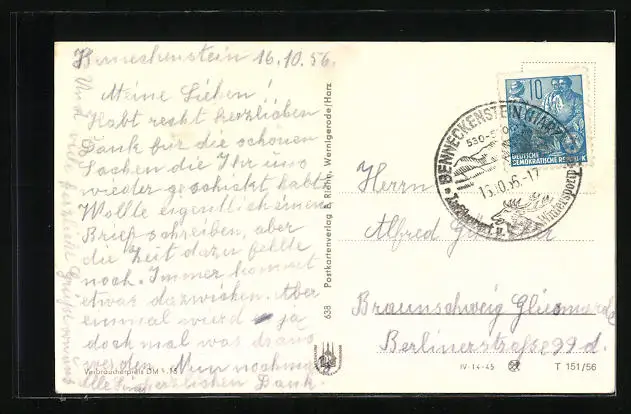 Benneckenstein 16.10.56.
Meine Lieben!
Habt recht herzlichen
Dank für die schönen
Sachen die Ihr uns
wieder geschickt habt
Wollte eigentlich einen
Brief schreiben, aber
die Zeit dazu fehlte
noch. Immer kommt
etwas dazwischen. Aber
einmal wird ja
doch mal was draus
werden. Nun nochmal
herzlichen Dank.
Und viele herzliche Grüße
Verbraucherpreis DM
638 Postkartenverlag E. Riehn, Wernigerode/Harz
10
DEUTSCHE
DEMOKRATISCHE REPUBLIK
BENNECKENSTEIN (HARZ)
16.10.56.-17
Luftkurort u. Wintersportpl.
Herrn
Alfred
Braunschweig Gliesmarode
Berlinerstraße 99 d.
IV-14-45
T 151/56